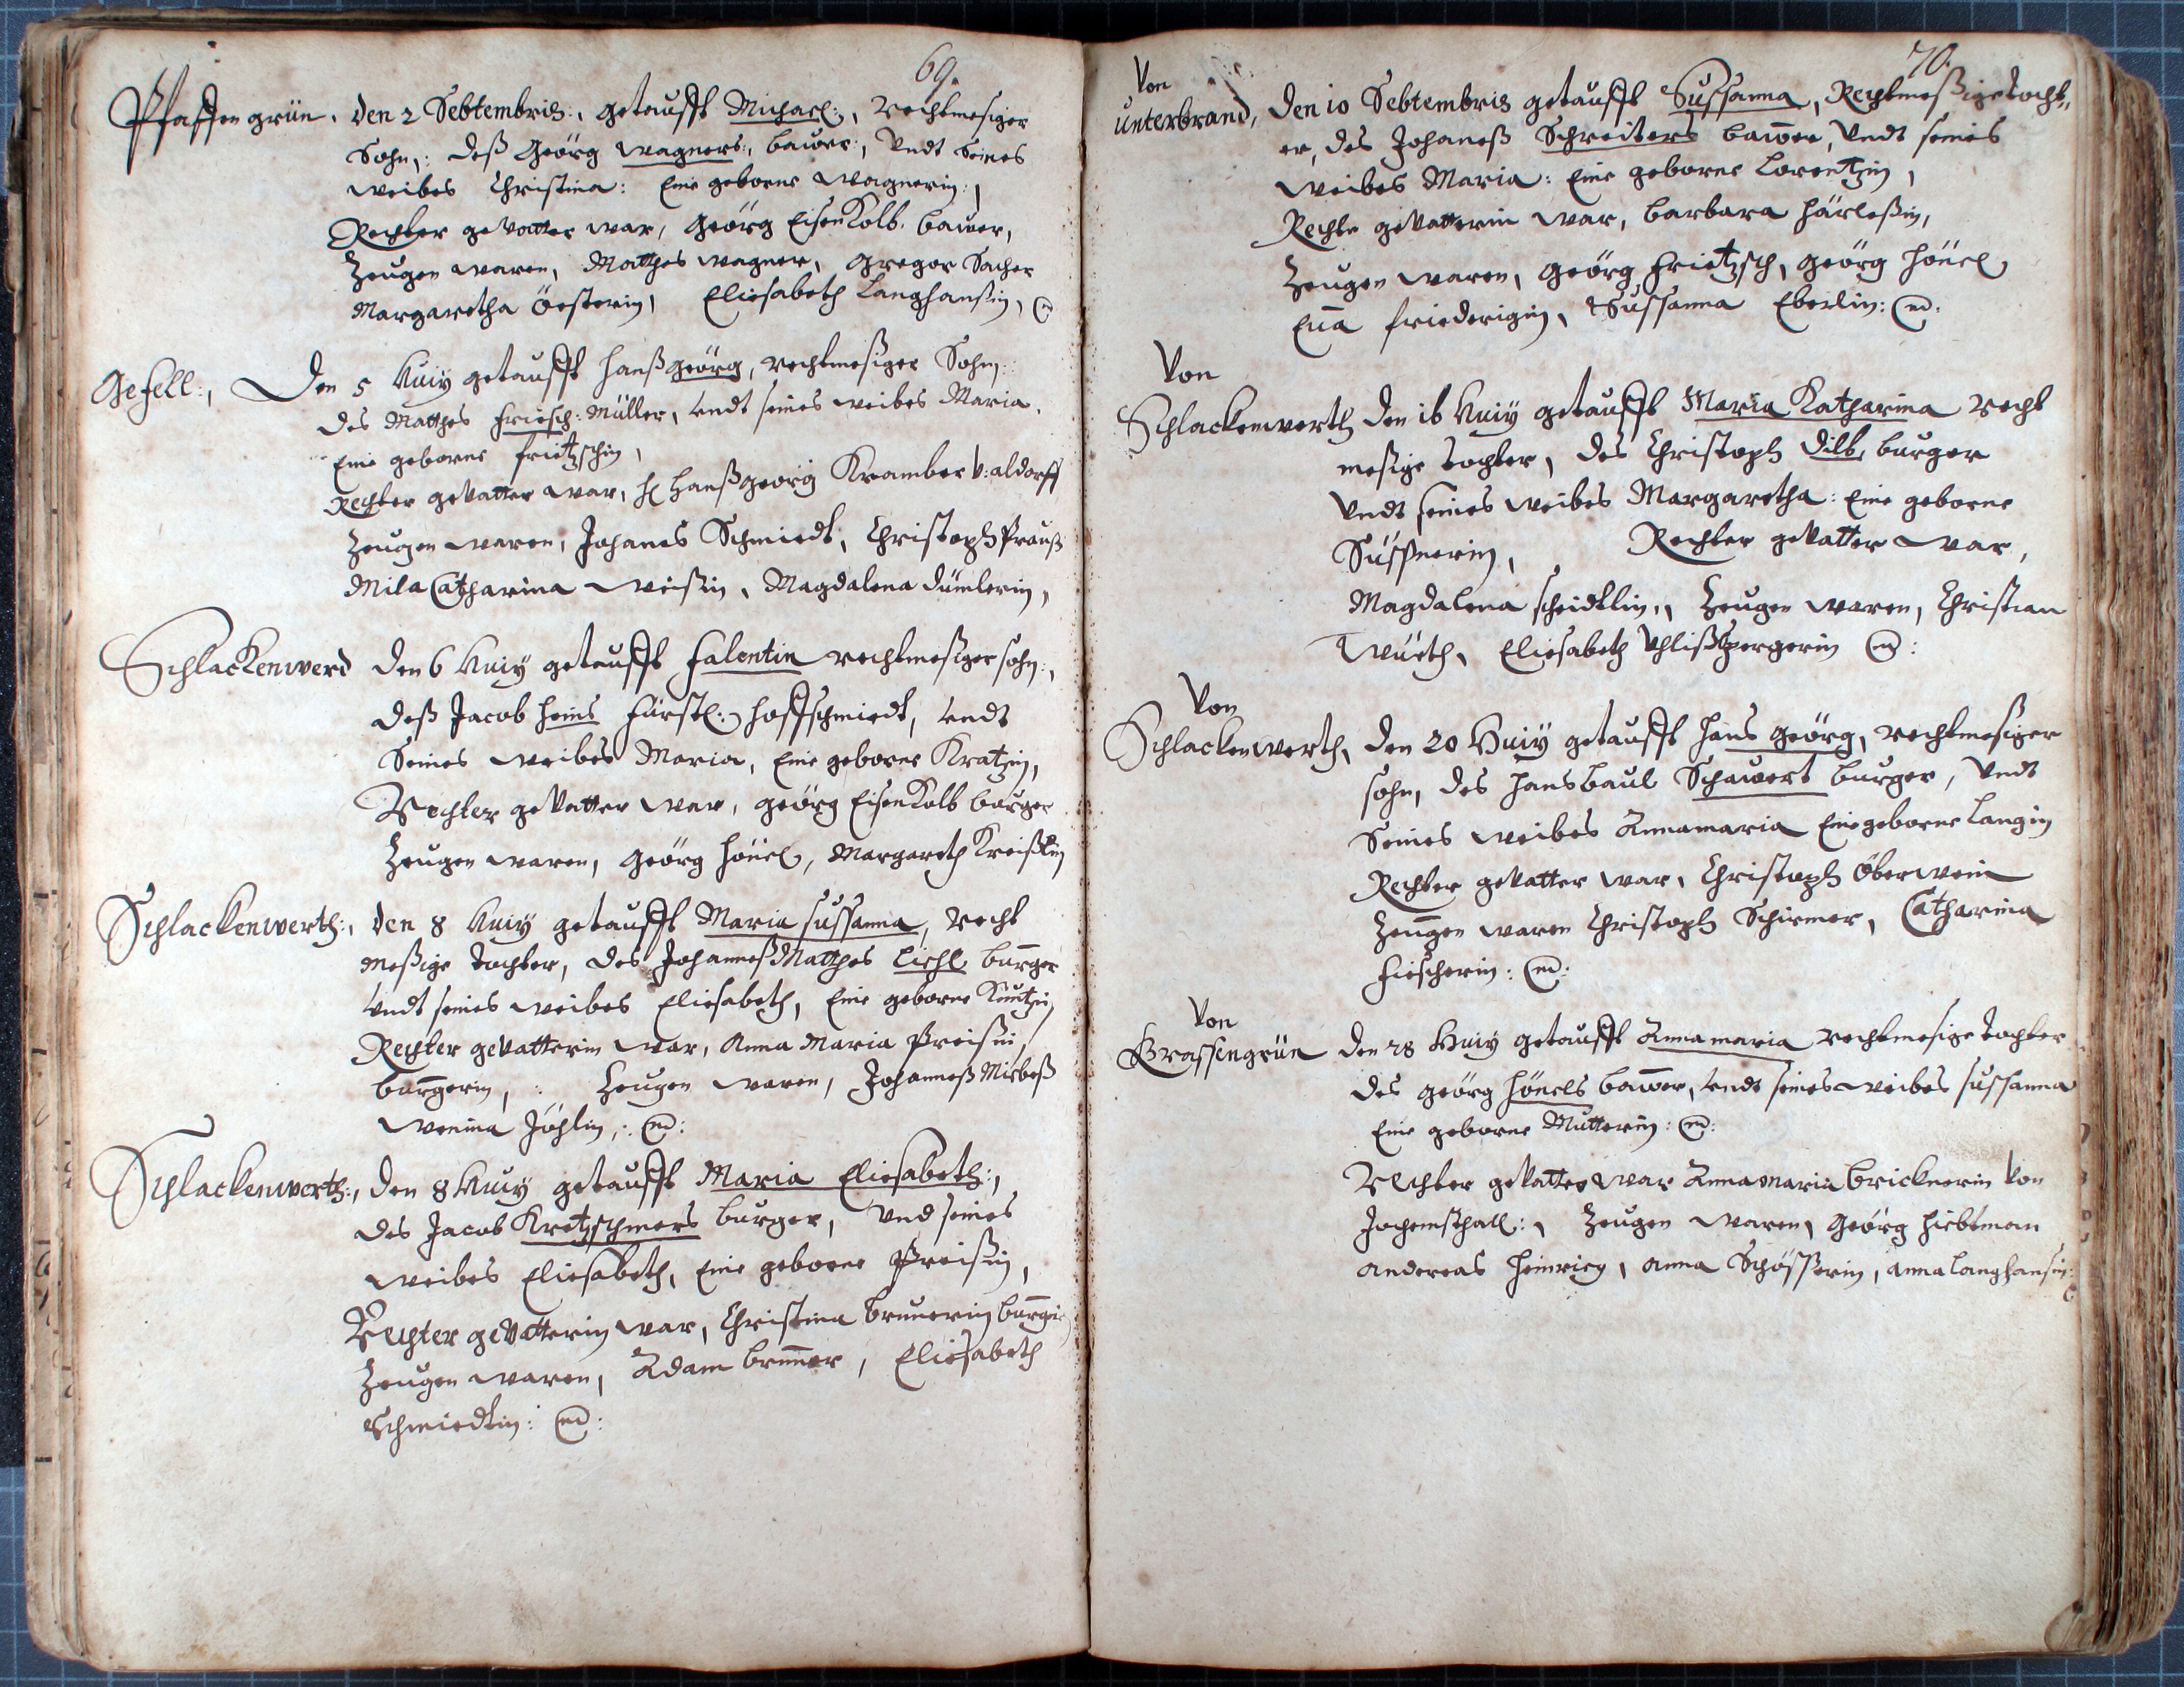 69.
Pfaffengrün. Den 2 Sebtembris:, getaufft Michael:, rechtmesiger
Sohn,: deß Geörg Wagners:, bawer:, Undt Seines
weibes Christina: Eine geborne Wagnerin:,
Rechter gevatter war, Geörg EisenKolb. bawer,
Zeugen waren, Matthes wagner, Gregor Sacher
Margaretha Öesterin, Eliesabeth Langhanßin,
Gefell:, Den 5 Huiy getaufft Hanß geörg, rechtmesiger Sohn,:
des Matthes Friesch: Müller, undt seines weibes Maria.
Eine geborne frietzschin,
Rechter gevatter war, H Hanß georig Kramber V: aldorff
Zeugen waren, Johanes Schmiedt, Christoph Prauß
Mila Catharina weisin, Magdalena dümlerin,
Schlackenwerd Den 6 Huiy getaufft Falentin rechtmesiger sohn:,
deß Jacob Heins Fürstl: hoffschmiedt, undt
Seines weibes Maria, Eine geborne Kratzin,
Rechter gevatter war, geörg EisenKolb burger
Zeugen waren, Geörg Hönel, Margareth
Schlackenwerth:, Den 8 Huiy getaufft Maria Sussanna, recht
mesige tochter, des Johanneß Matthes Liehl burger
undt seines weibes Eliesabeth, Eine geborne Kuntzin
Rechter gevatterin war, Anna Maria Preisin,
burgerin,: Zeugen waren, Johanneß
Wenina Jöhlin,:
Schlackenwerth:, Den 8 Huiy getaufft Maria Eliesabeth:,
des Jacob Kretzschmers burger, Und seines
weibes Eliesabeth, Eine geborne Preisin,
Rechter gevatterin war, Christina brunerin
Zeugen waren, Adam brunner, Eliesabeth
Schmiedtin:
70.
Von
Unterbrand, Den 10 Sebtembris getaufft Sussanna, Rechtmesige tocht,
er, des Johaneß Schreiters bawer, Undt seines
weibes Maria: Eine geborne Lorentzin,
Rechte gevatterin war, barbara härleßin,
Zeugen waren, Geörg Frietzsch, Geörg Hönel,
Eua friederigin, Sussanna Eberlin:
Von
Schlackenwerth Den 16 Huiy getaufft Maria Katharina recht
mesige tochter, des Christoph Dilb, burger
Undt seines weibes Margaretha: Eine geborne
Süssnerin, Rechter gevatter war,
Magdalena scheidtlin, Zeugen waren, Christian
Wuerth, Eliesabeth
Von
Schlackenwerth, Den 20 Huiy getaufft Hans geörg, rechtmesiger
sohn, des Hans baul Schauert burger, Undt
Seines weibes Annamaria Eine geborne Langin
Rechter gevatter war, Christoph Öberwein
Zeugen waren Christoph Schirmer, Catharina
Fiescherin:
Von
Grassengrün Den 28 Huiy getaufft Annamaria rechtmesige tochter
des geörg Hönels bawer, undt seines weibes sussanna
Eine geborne Mutterin:
Rechter gevatter war Annamaria Bricknerin Von
Jochemsthall:, Zeugen waren, Geörg hiebtman
andereas Heinrich, anna Schösserin, anna Langhansin: